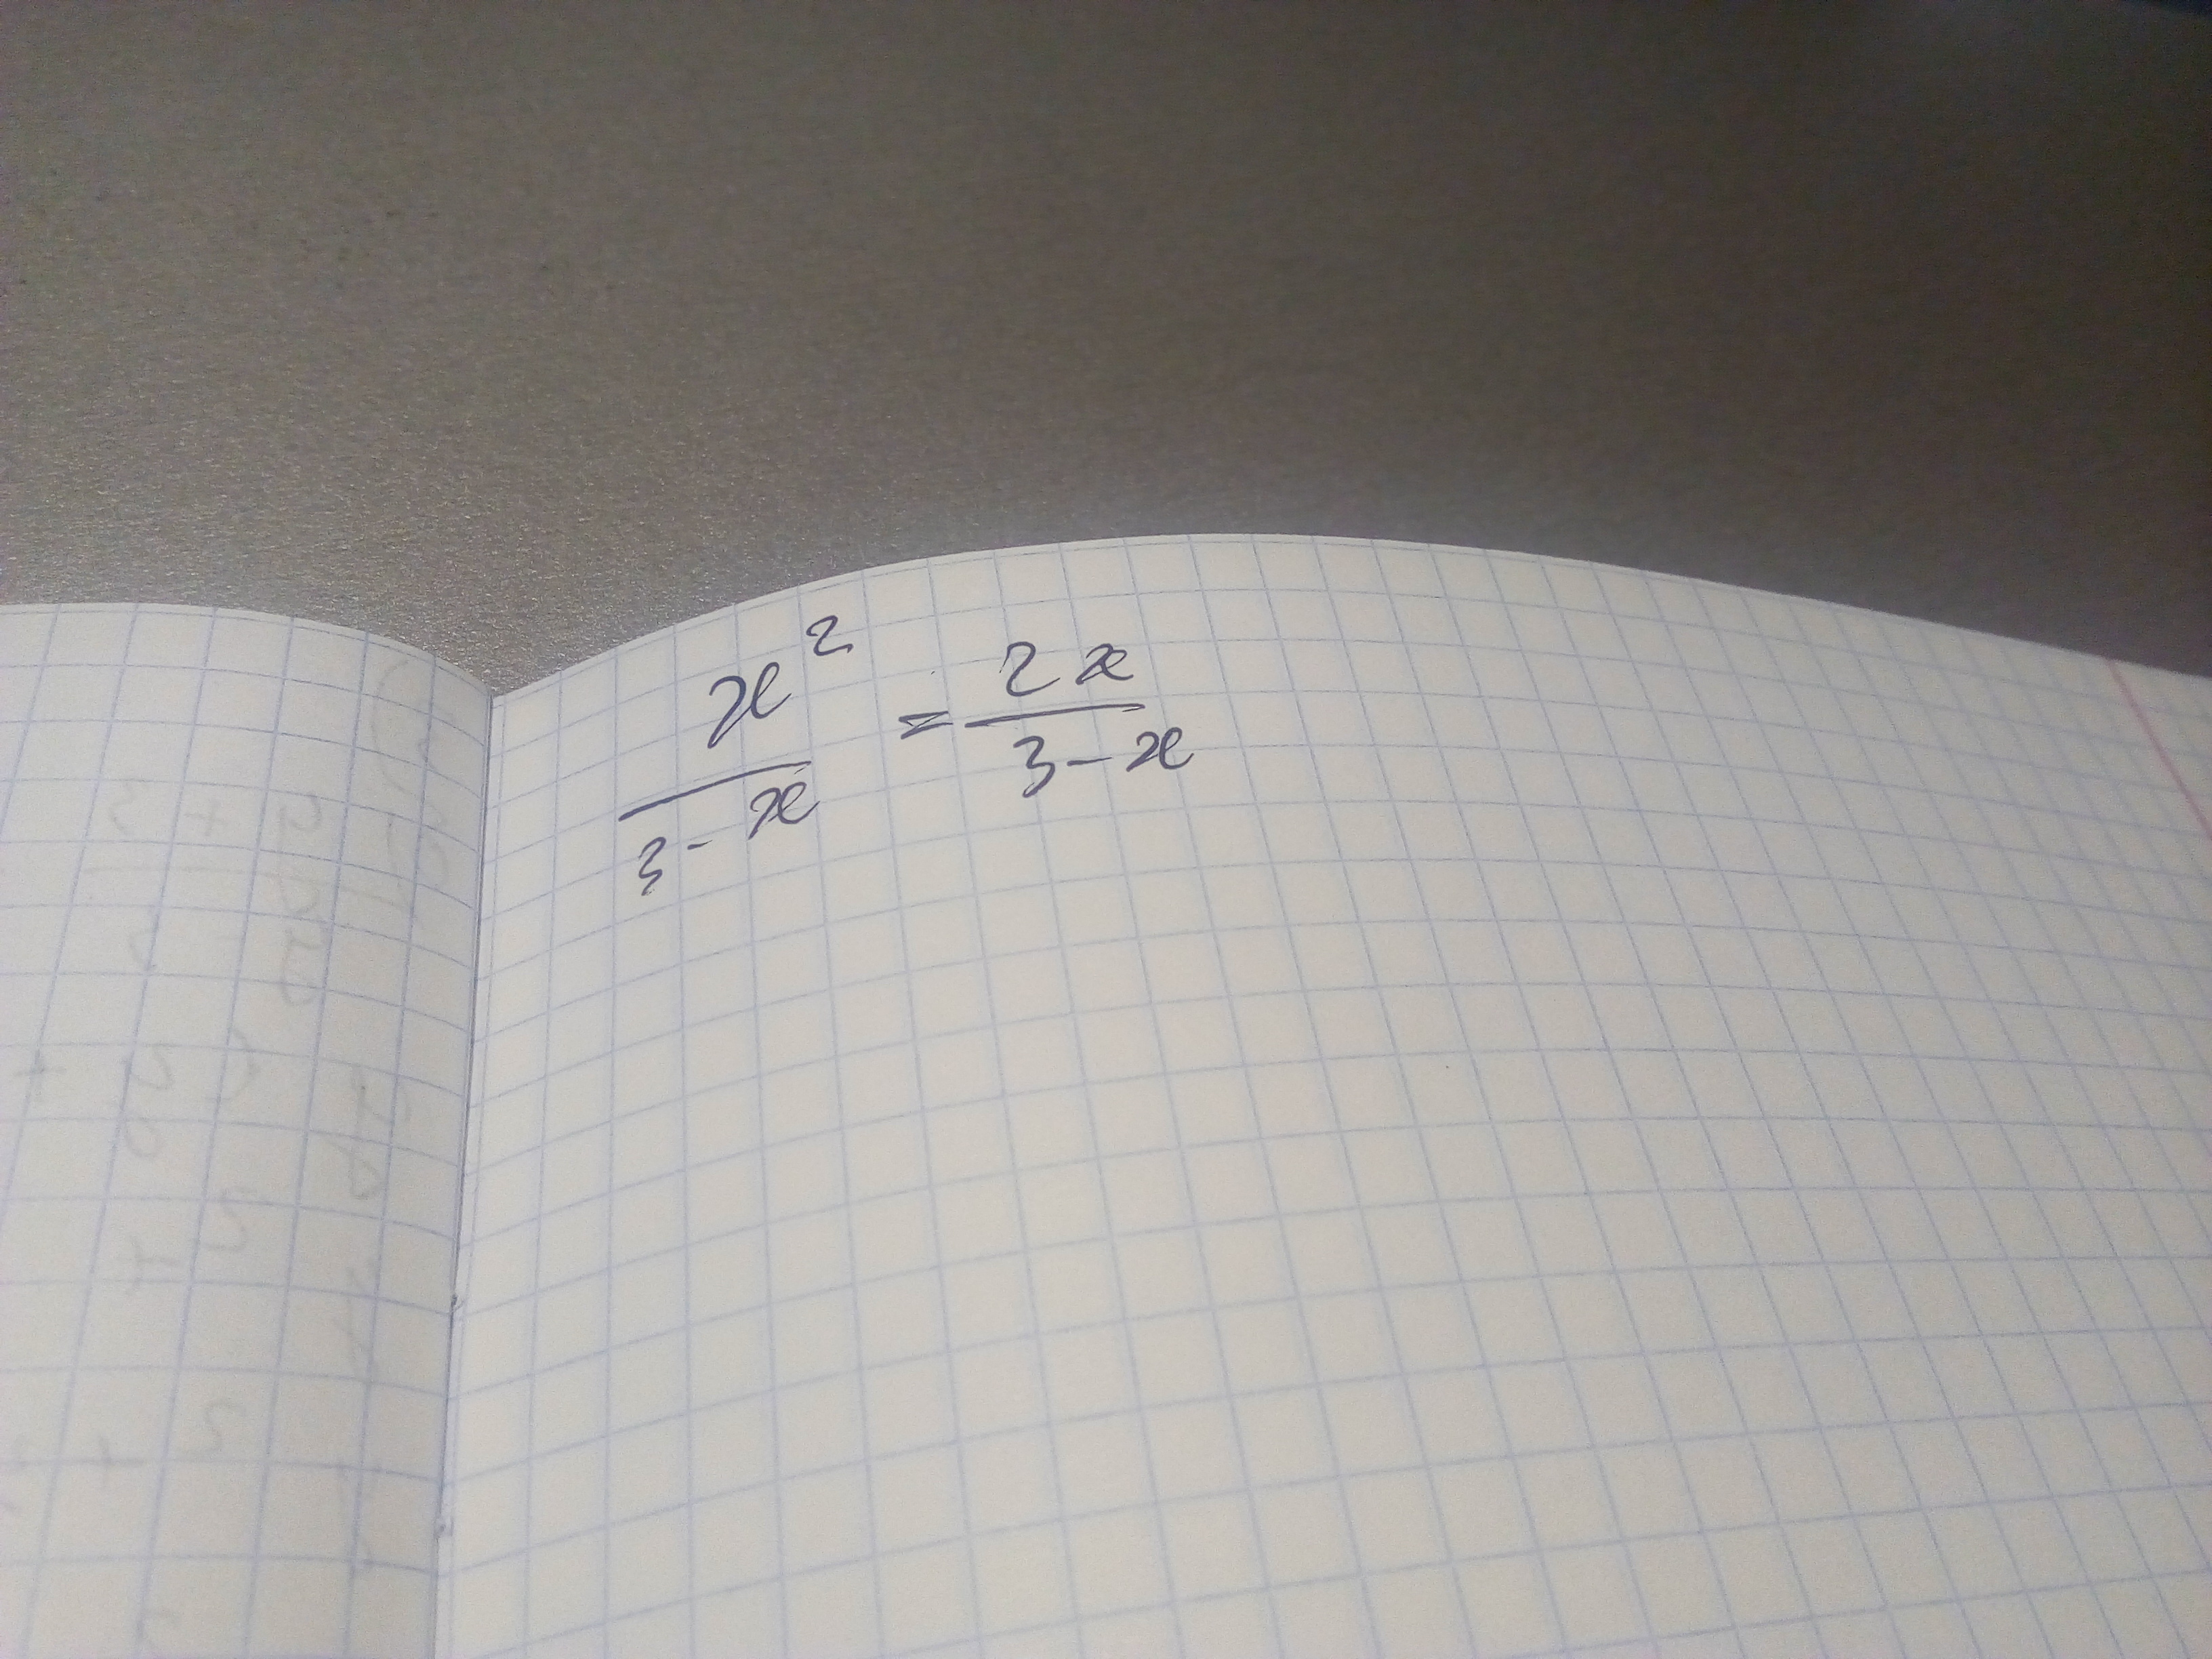 x²/(3-x) = 2x/(3-x)